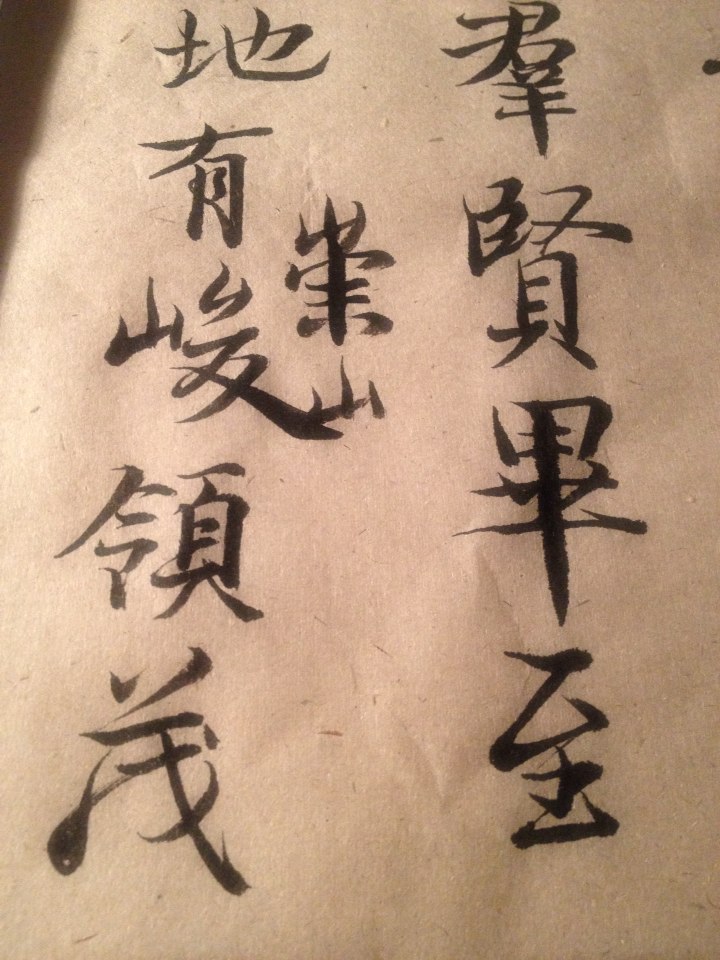 羣賢畢至
崇山
地有峻領茂